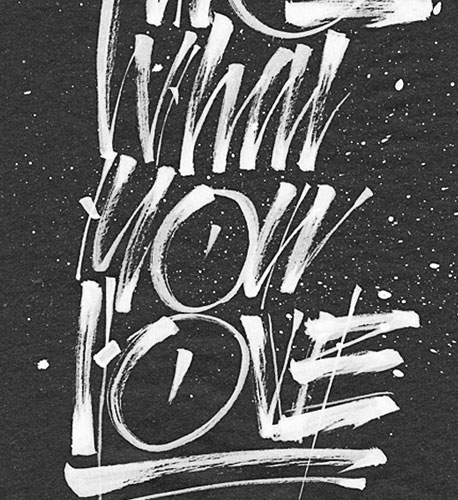 what
you
LOVE